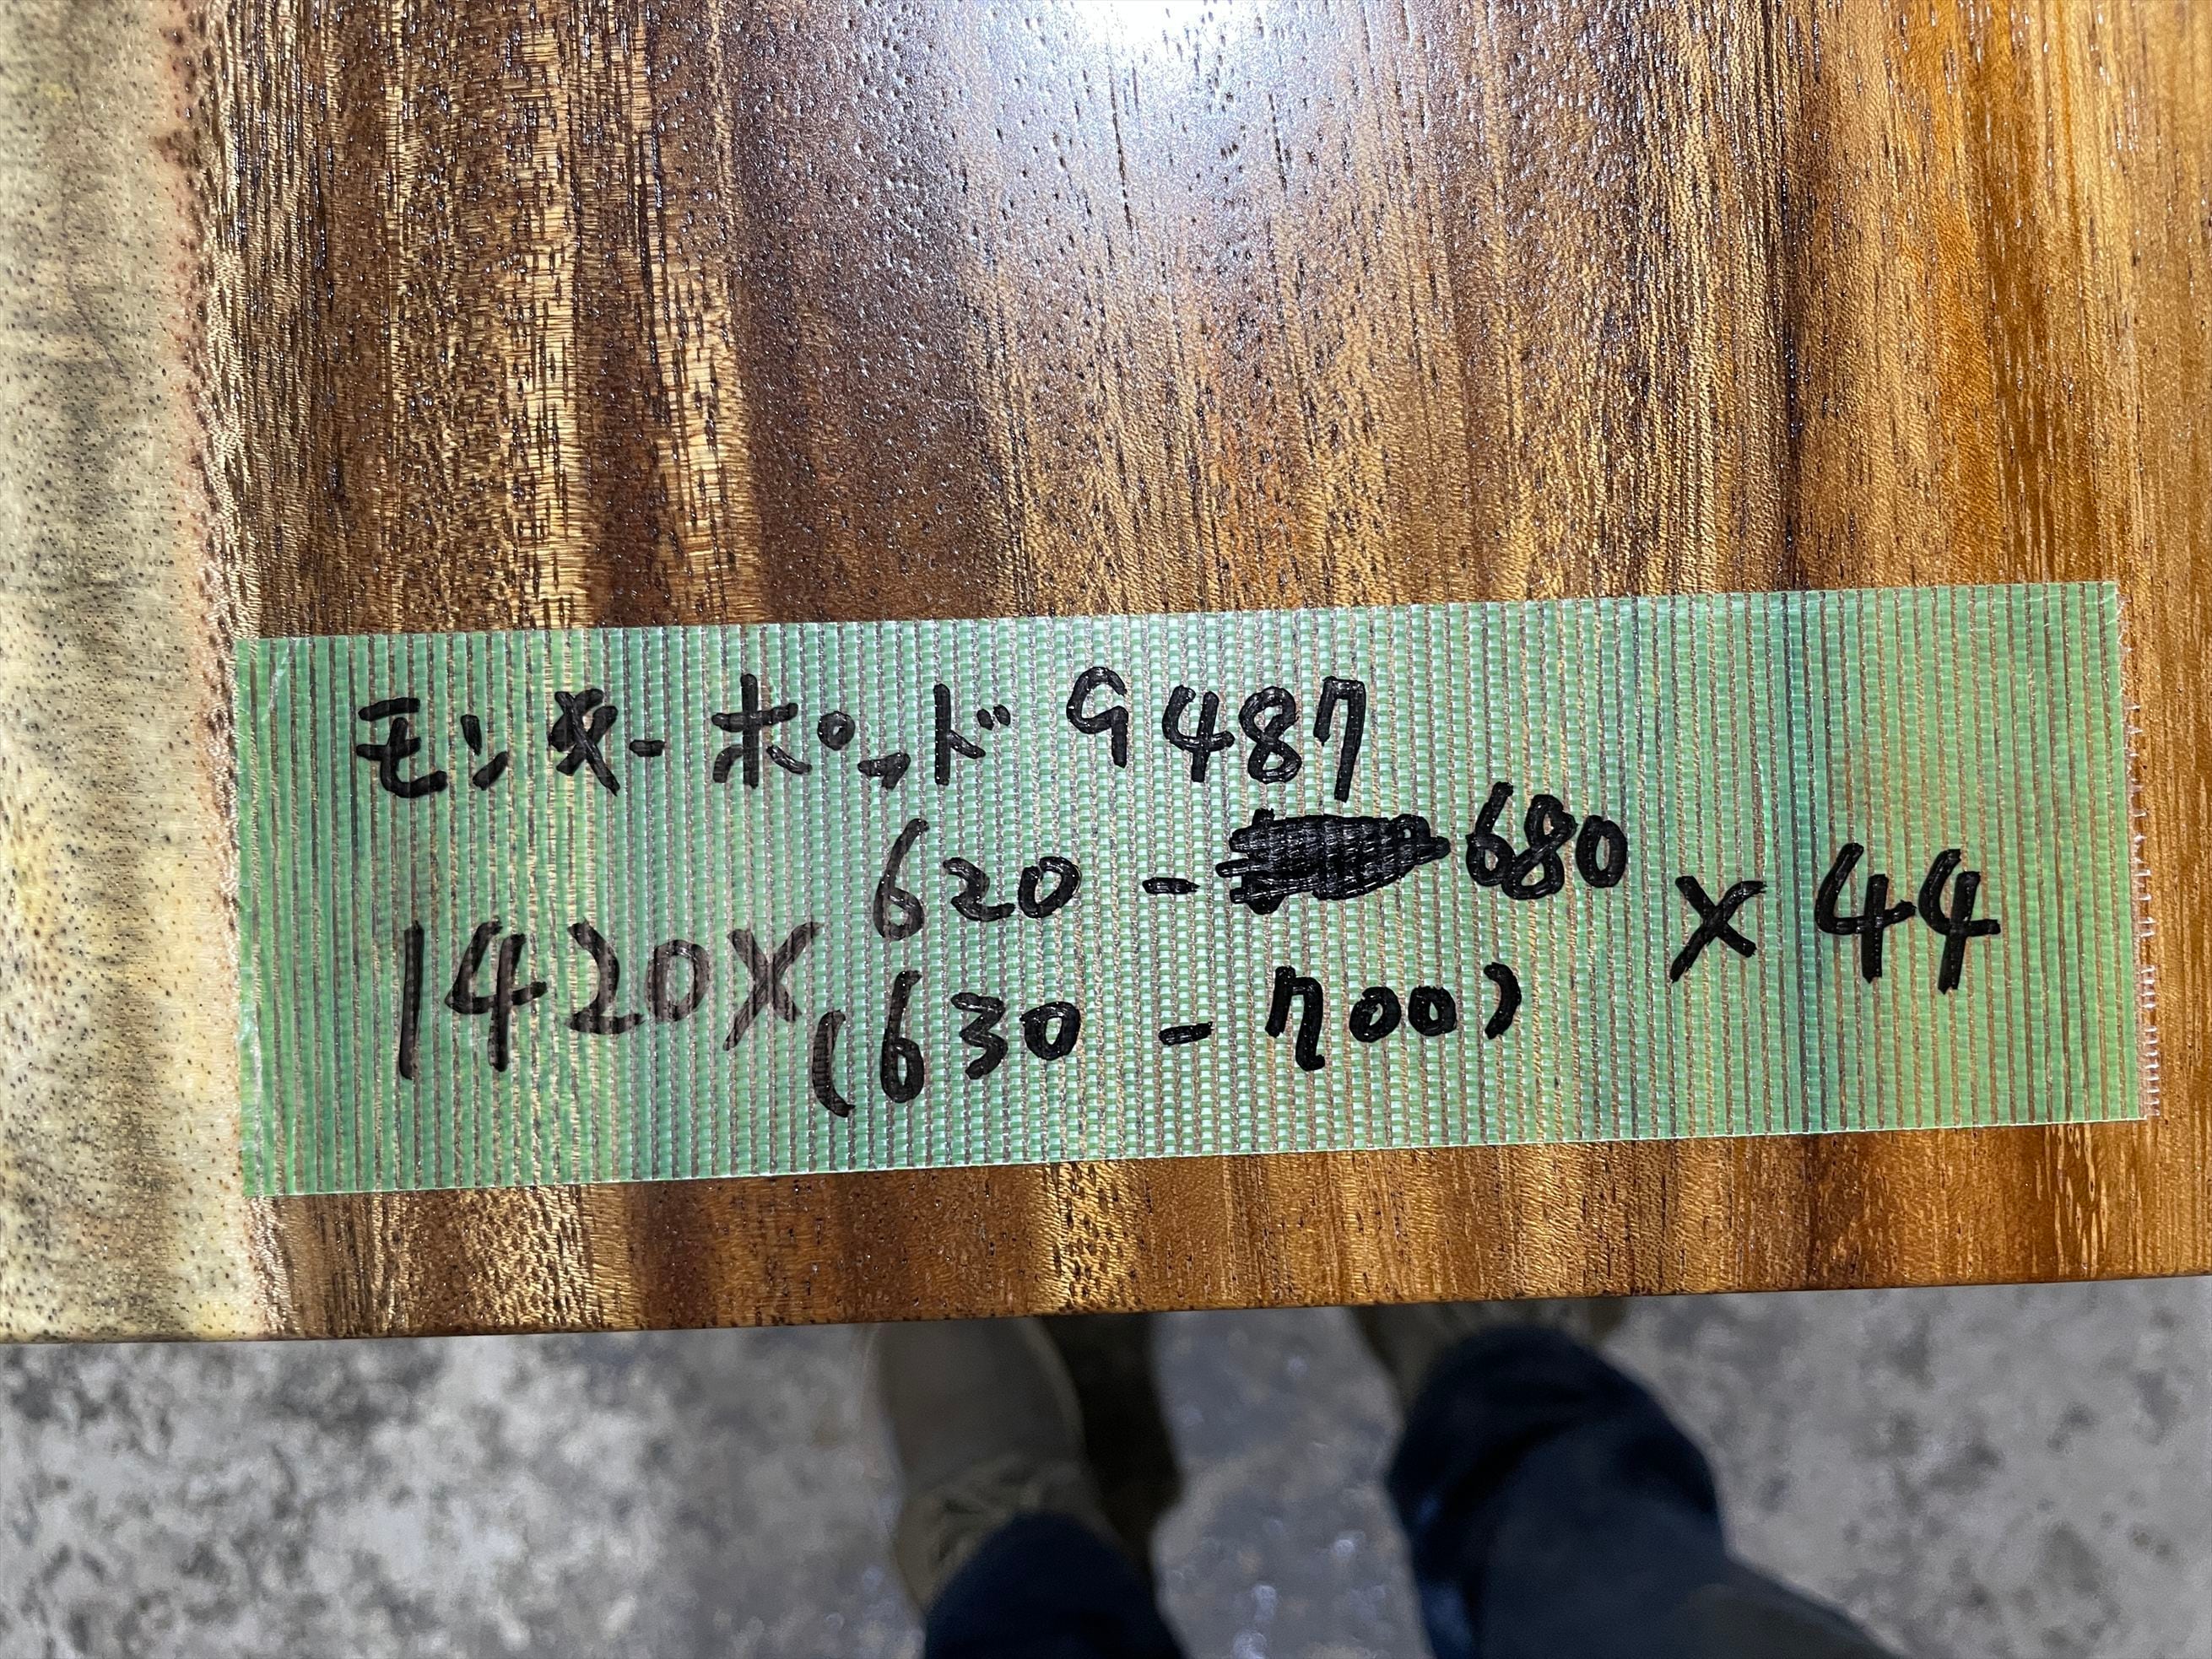 モンキーポッド 9487
1420×620-680×44
(630-700)